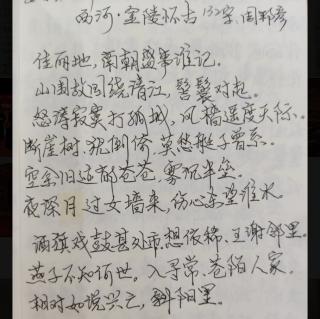 西河·金陵怀古 132字. 周邦彦
佳丽地,南朝盛事谁记.
山围故国绕清江,髻鬟对起.
怒涛寂寞打孤城,风樯遥度天际.
断崖树.犹倒倚,莫愁艇子曾系.
空余旧迹郁苍苍,雾沉半垒.
夜深月过女墙来,伤心东望淮水.
酒旗戏鼓甚处市.想依稀.王谢邻里.
燕子不知何世.入寻常.巷陌人家.
相对如说兴亡,斜阳里.